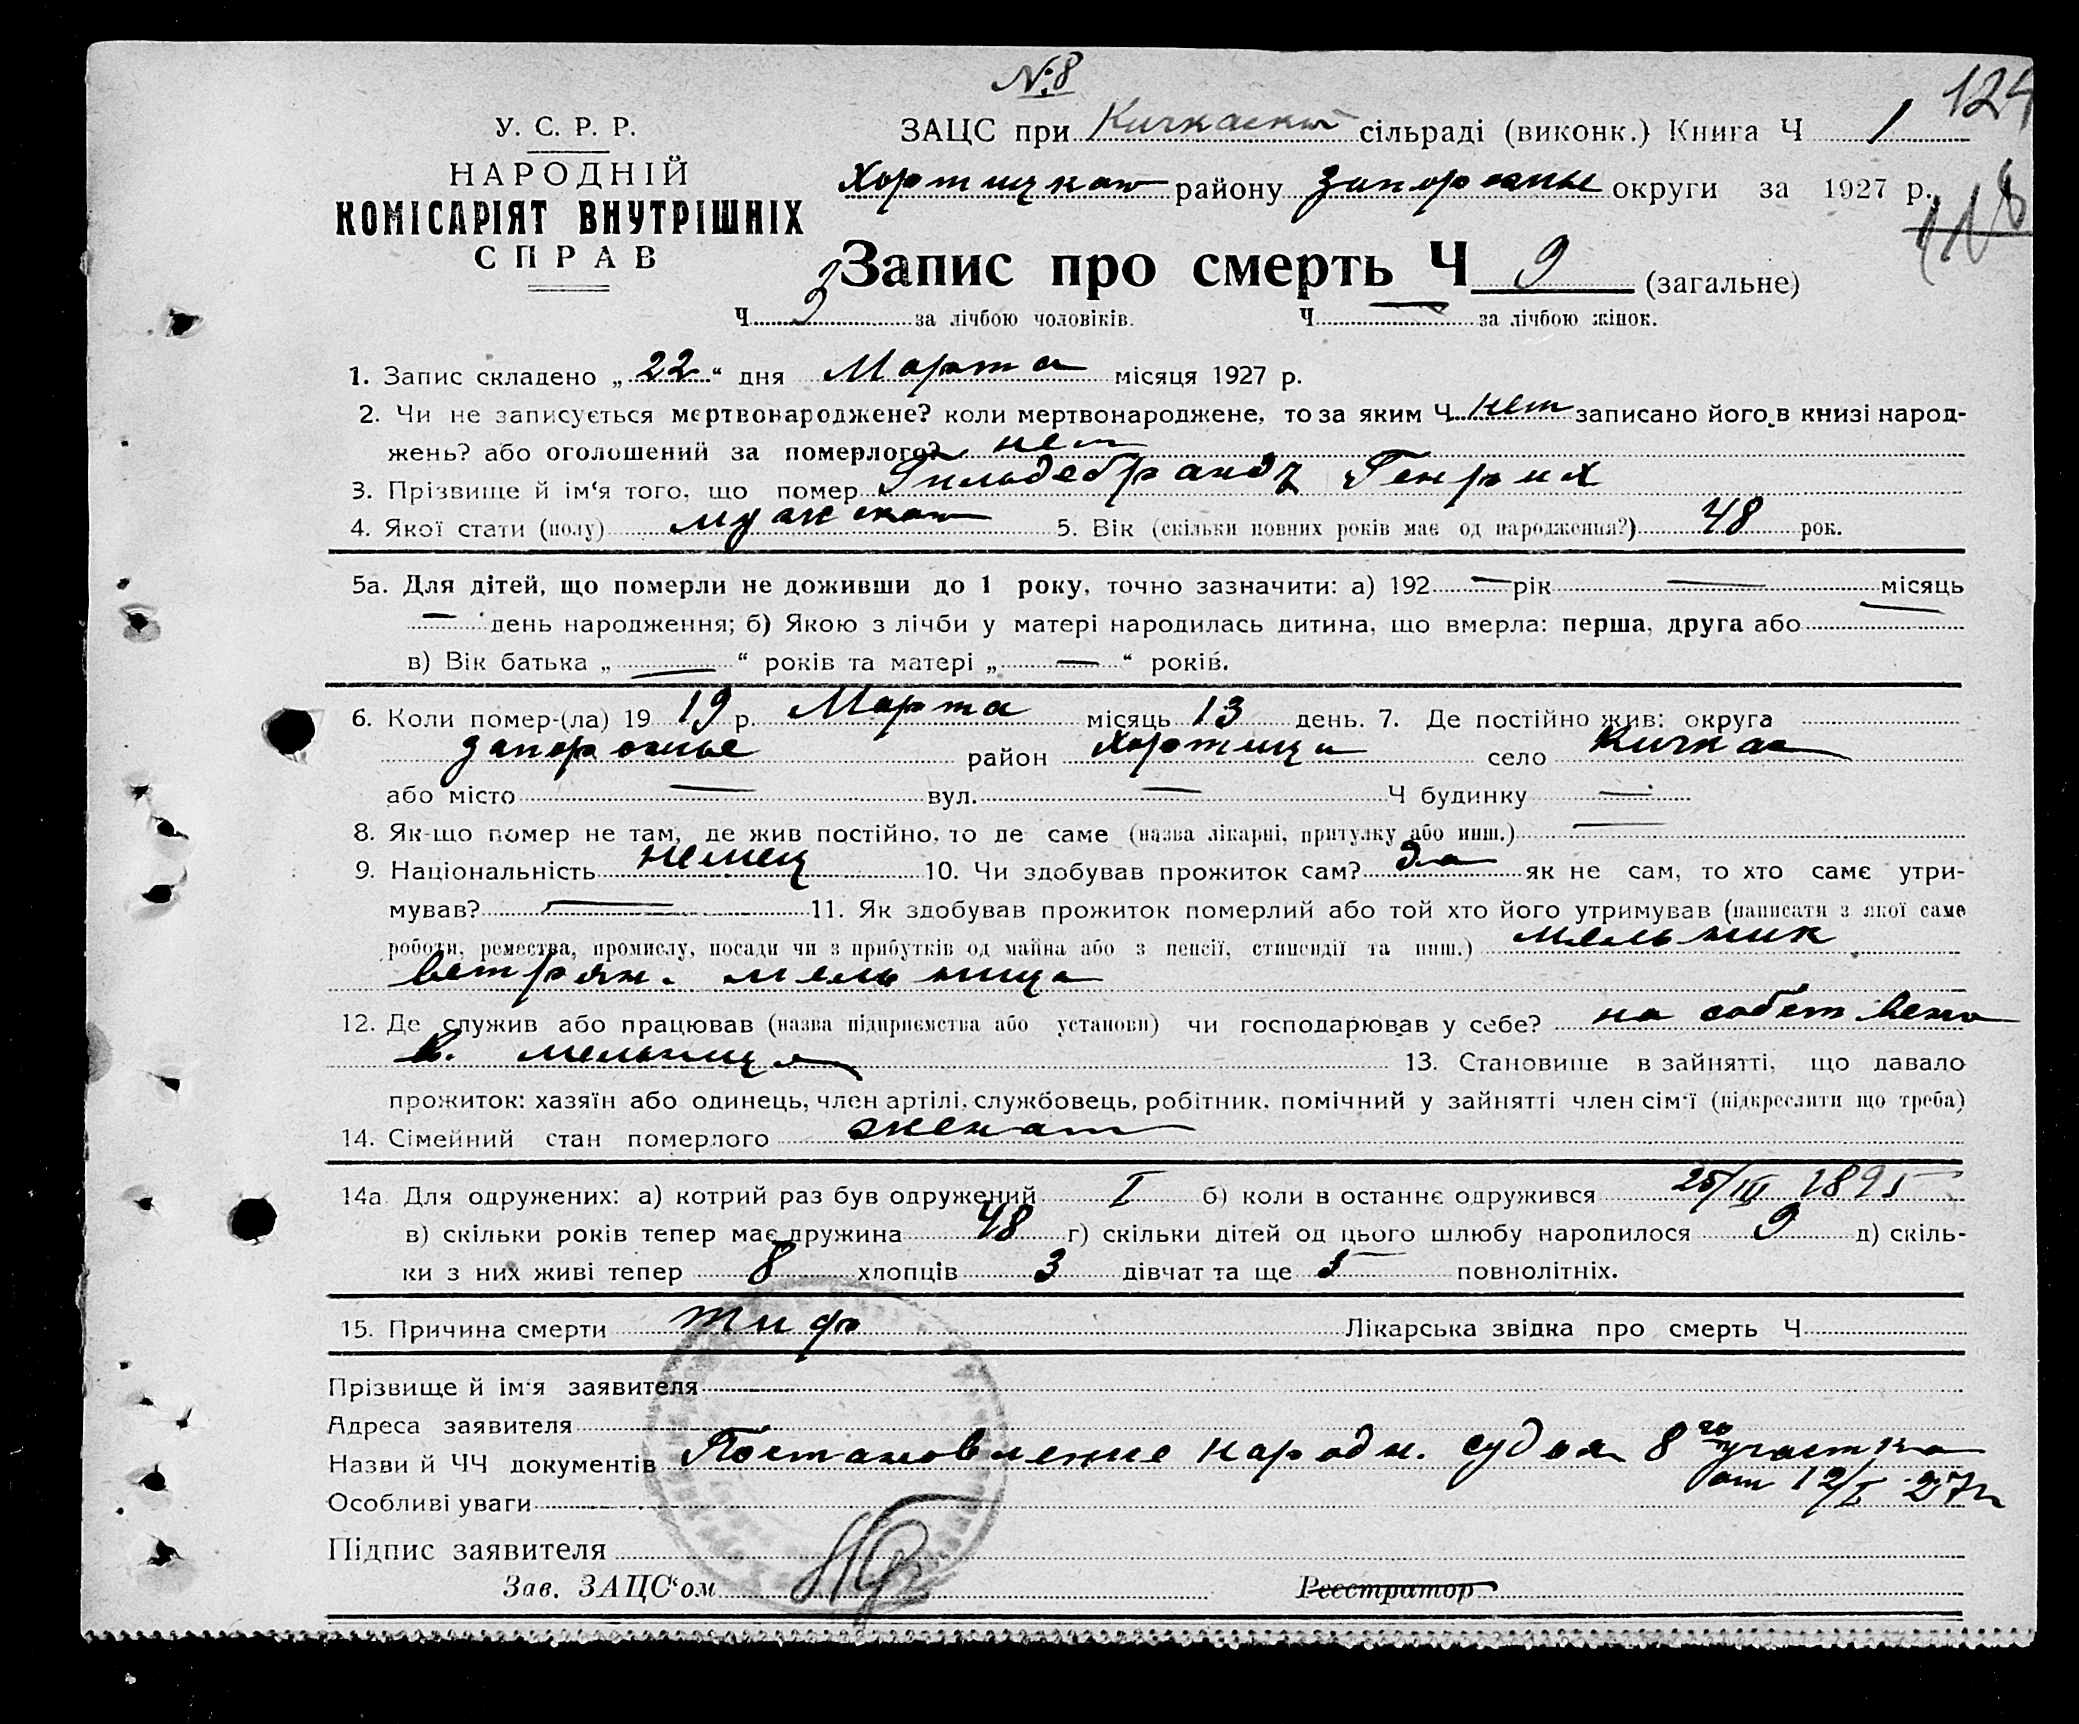 № 8
124
У. С. Р. Р.
НАРОДНІЙ
КОМІСАРІЯТ ВНУТРІШНІХ
СПРАВ
ЗАЦС при Кичкаский сільраді (виконк.) Книга Ч 1
Хортицкаго району Запорожье округи за 1927 р.
118
Запис про смерть Ч 9 (загальне)
Ч за лічбою чоловіків. Ч — за лічбою жінок.
1. Запис складено „22“ дня Марта місяця 1927 р.
2. Чи не записується мертвонароджене? коли мертвонароджене, то за яким Ч нет записано його в книзі народ-
жень? або оголошений за померлого? нет
3. Прізвище й ім‘я того, що помер Гильдебрандт Генрих
4. Якої стати (полу) мужская 5. Вік (скільки повних років має од народження?) 48 рок.
5а. Для дітей, що померли не доживши до 1 року, точно зазначити: а) 192 — рік — місяць
— день народження; б) Якою з лічби у матері народилась дитина, що вмерла: перша, друга або —
в) Вік батька „ — “ років та матері „ — “ років.
6. Коли помер-(ла) 19 19 р. Марта місяць 13 день. 7. Де постійно жив: округа
Запорожье район Хортица село Кичкас
або місто — вул. — Ч будинку —
8. Як-що помер не там, де жив постійно, то де саме (назва лікарні, притулку або инш.) —
9. Національність немец 10. Чи здобував прожиток сам? да як не сам, то хто саме утри-
мував? — 11. Як здобував прожиток померлий або той хто його утримував (написати з якої саме
роботи, ремества, промислу, посади чи з прибутків од майна або з пенсії, стипендії та инш.) мельник
ветрян. мельница
12. Де служив або працював (назва підприємства або установи) чи господарював у себе? на собственно
в. мельница 13. Становище в зайнятті, що давало
прожиток: хазяїн або одинець, член артілі, службовець, робітник, помічний у зайнятті член сім‘ї (підкреслити що треба)
14. Сімейний стан померлого женат
14а Для одружених: а) котрий раз був одружений I б) коли в останнє одружився 25/III 1895
в) скільки років тепер має дружина 48 г) скільки дітей од цього шлюбу народилося 9 д) скіль-
ки з них живі тепер 8 хлопців 3 дівчат та ще 5 повнолітніх.
15. Причина смерти тиф Лікарська звідка про смерть Ч
Прізвище й ім‘я заявителя
Адреса заявителя
Назви й ЧЧ документів Постановление народн. судья 8го участка
от 12/I 27 г
Особливі уваги
Підпис заявителя
Зав. ЗАЦС‘ом
Реєстратор